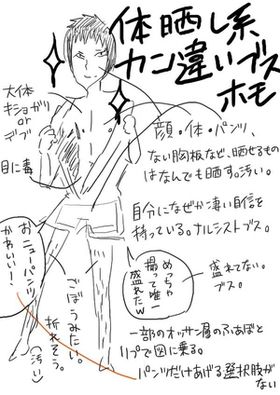 体晒し系
カン違いブス
ホモ
大体
キショガリ
or
デブ
目に毒
顔・体・パンツ、
ない胸板など、晒せるもの
はなんでも晒す。汚い。
自分になぜか凄い自信を
持っている。ナルシストブス。
おニューパンツ
かわいい！
ごぼうみたい。
折れそう。
(汚い)
めっちゃ
撮って唯一
盛れたw
盛れてない。
ブス。
一部のオッサン層のふぁぼと
リプで図に乗る。
パンツだけあげる選択肢が
ない